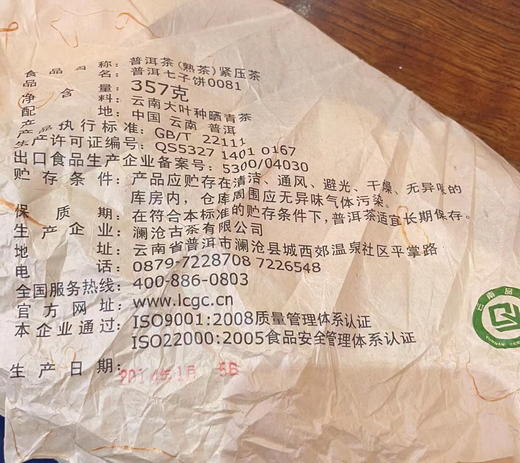 食品名称：普洱茶（熟茶）紧压茶
品名：普洱七子饼0081
净含量：357克
配料：云南大叶种晒青茶
产地：中国 云南 普洱
产品执行标准：GB/T 22111
生产许可证编号：QS5327 1401 0167
出口食品生产企业备案号：5300/04030
贮存条件：产品应贮存在清洁、通风、避光、干燥、无异味的
库房内，仓库周围应无异味气体污染。
保质期：在符合本标准的贮存条件下，普洱茶适宜长期保存。
生产企业：澜沧古茶有限公司
地址：云南省普洱市澜沧县城西郊温泉社区平掌路
电话：0879-7228708 7226548
全国服务热线：400-886-0803
官方网址：www.lcgc.cn
本企业通过：ISO9001:2008质量管理体系认证
ISO22000:2005食品安全管理体系认证
生产日期：
云南品